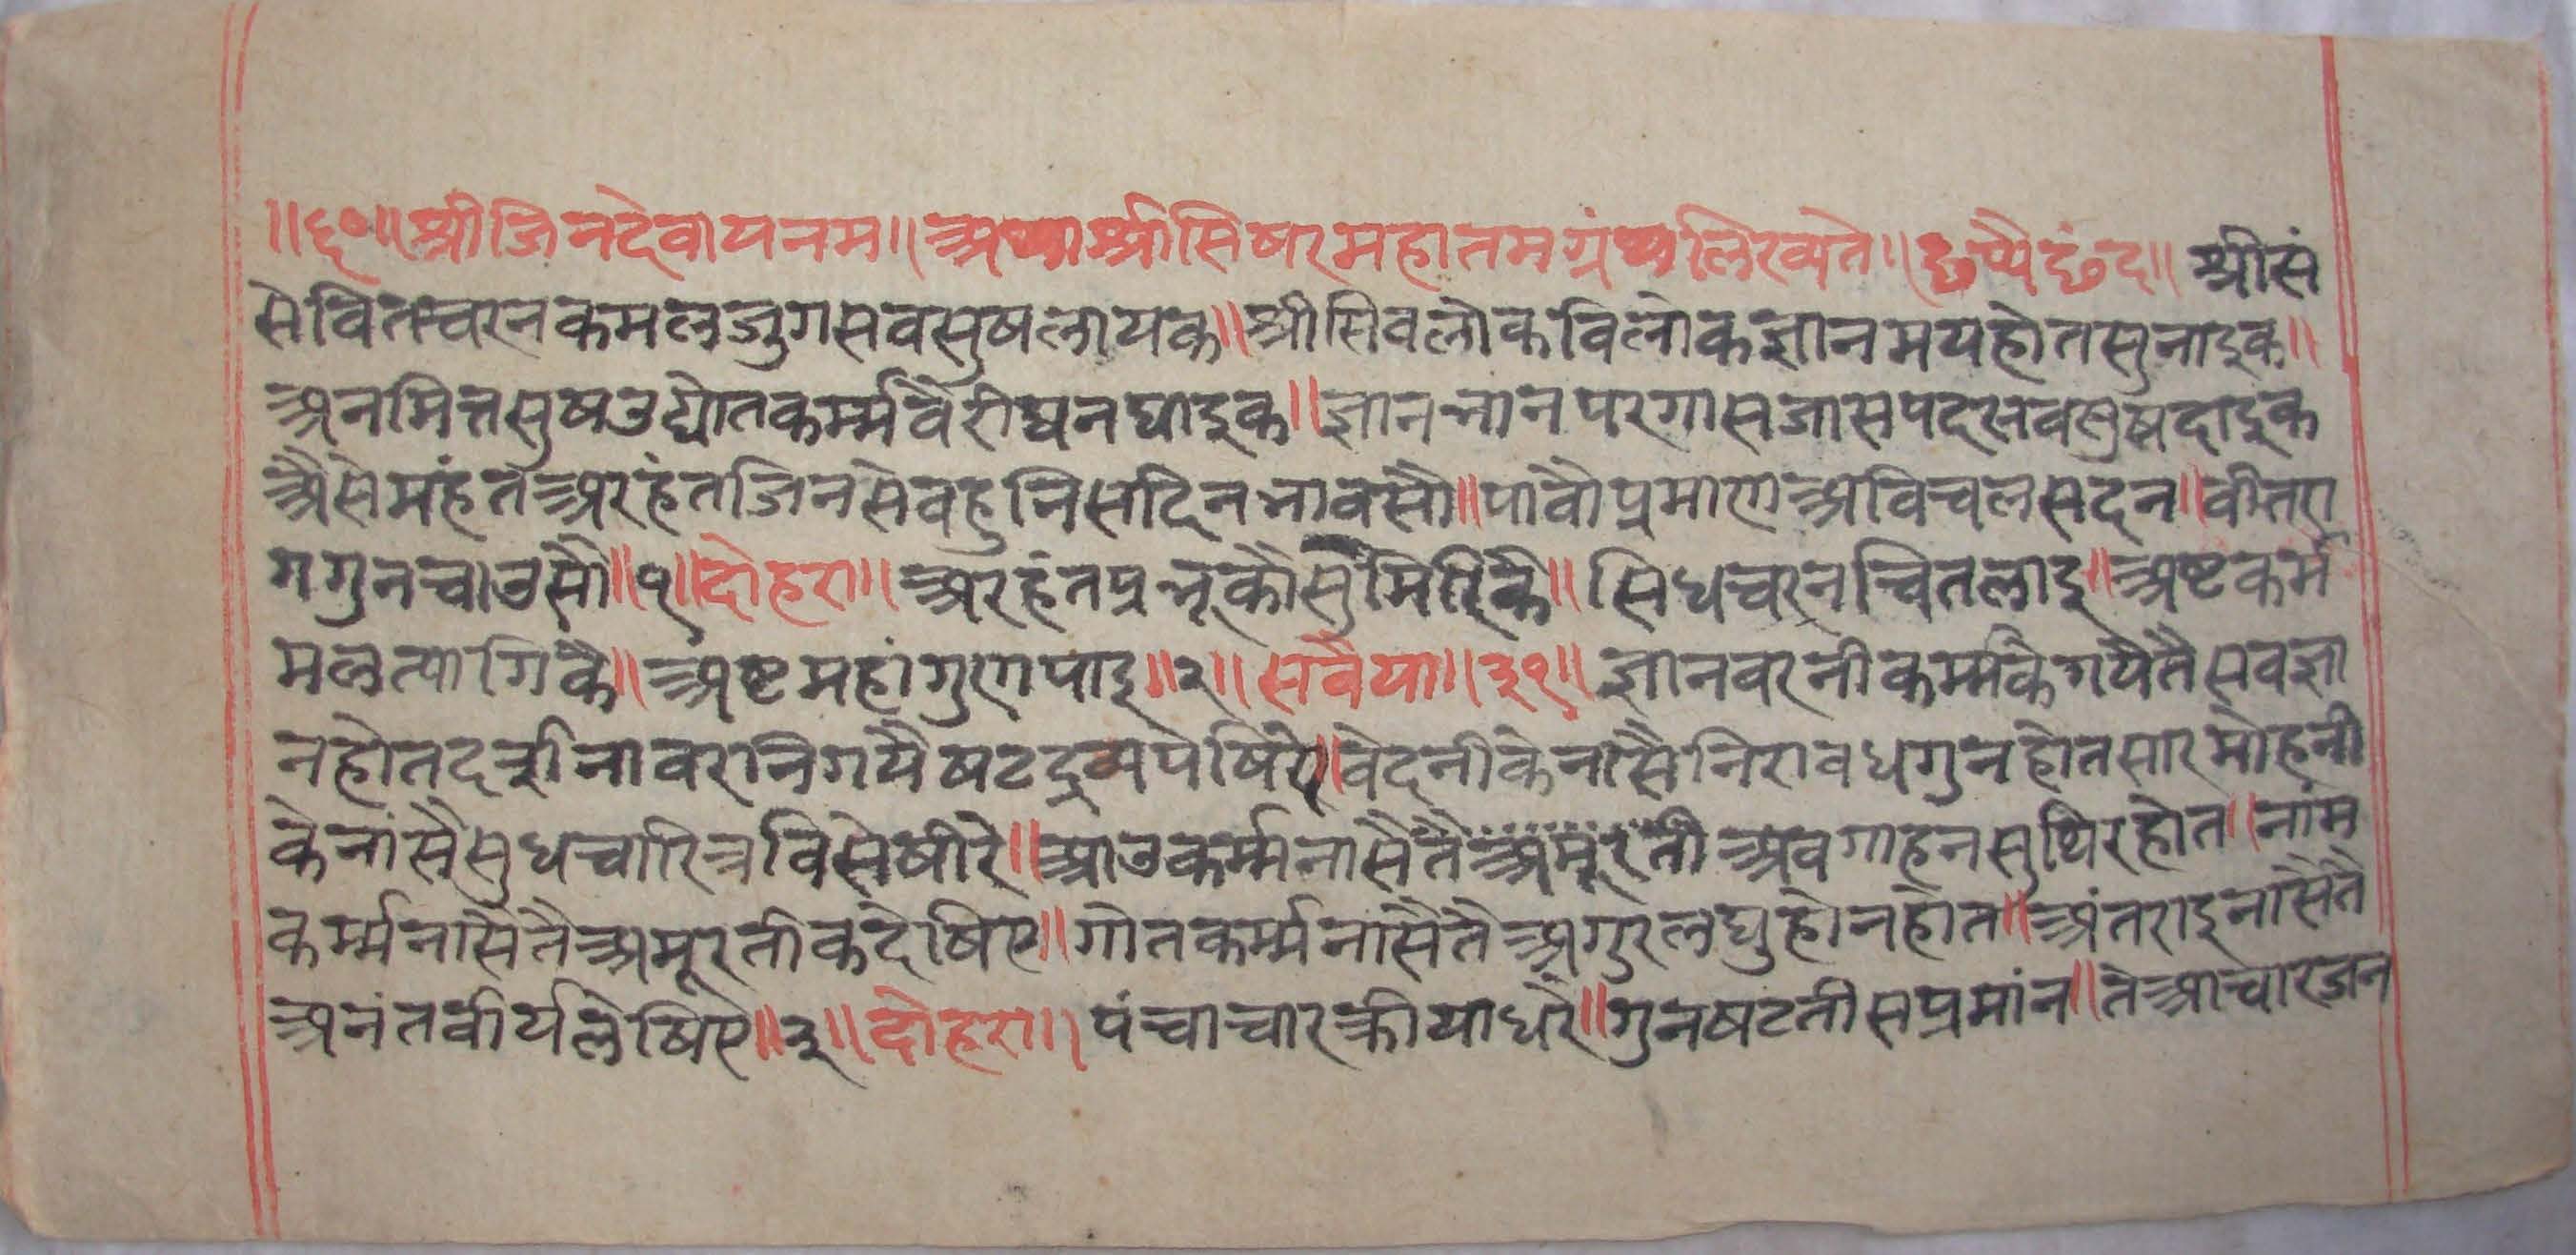 ॥६०॥ श्रीजिनदेवायनम॥ अथ श्रीसिषरमहातमग्रंथलिख्यते॥ छप्पैछंद॥ श्रीसं
सेवितचरनकमलजुगसवसुषलायक॥ श्रीसिवलोकविलोकज्ञानमयहोतसुनाइक॥
अनमित्तसुषउद्योतकर्म्मवैरीघनघाइक॥ ज्ञानभानपरगासजासपदसवसुषदाइक
अैसेमंहंतअरहंतजिनसेवहुनिसदिनभावसौ॥ पावौप्रमाणअविचलसदन॥ वीतरा
गगुनचाउसौ॥१॥ दोहरा॥ अरहंतप्रभूकौसुमिरिकै॥ सिधचरनचितलाइ॥ अष्टकर्म
मलत्यागिकै॥ अष्टमहांगुणपाइ॥२॥ सवैया॥३१॥ ज्ञानवरनीकर्म्मकेगयैतैसवज्ञा
नहोतदर्शनावरनिगयैषटद्रव्यपेषिऐ॥ वेदनीकेनासैनिरावधगुनहोतसारमोहनी
केनांसैसुधचारित्रविसेषीरे॥ आउकर्म्मनासैतैअमूरतीअवगाहनसुथिरहोत॥ नांम
कर्म्मनासैतैअमूरतीकदेषिए॥ गोतकर्म्मनासैतैअगुरलघुहोनहोत॥ अंतराइनासैतै
अनंतवीर्यलेषिए॥३॥ दोहरा॥ पंचाचारक्रीयाधरै॥ गुनषटतीसप्रमांन॥ तेआचारजन